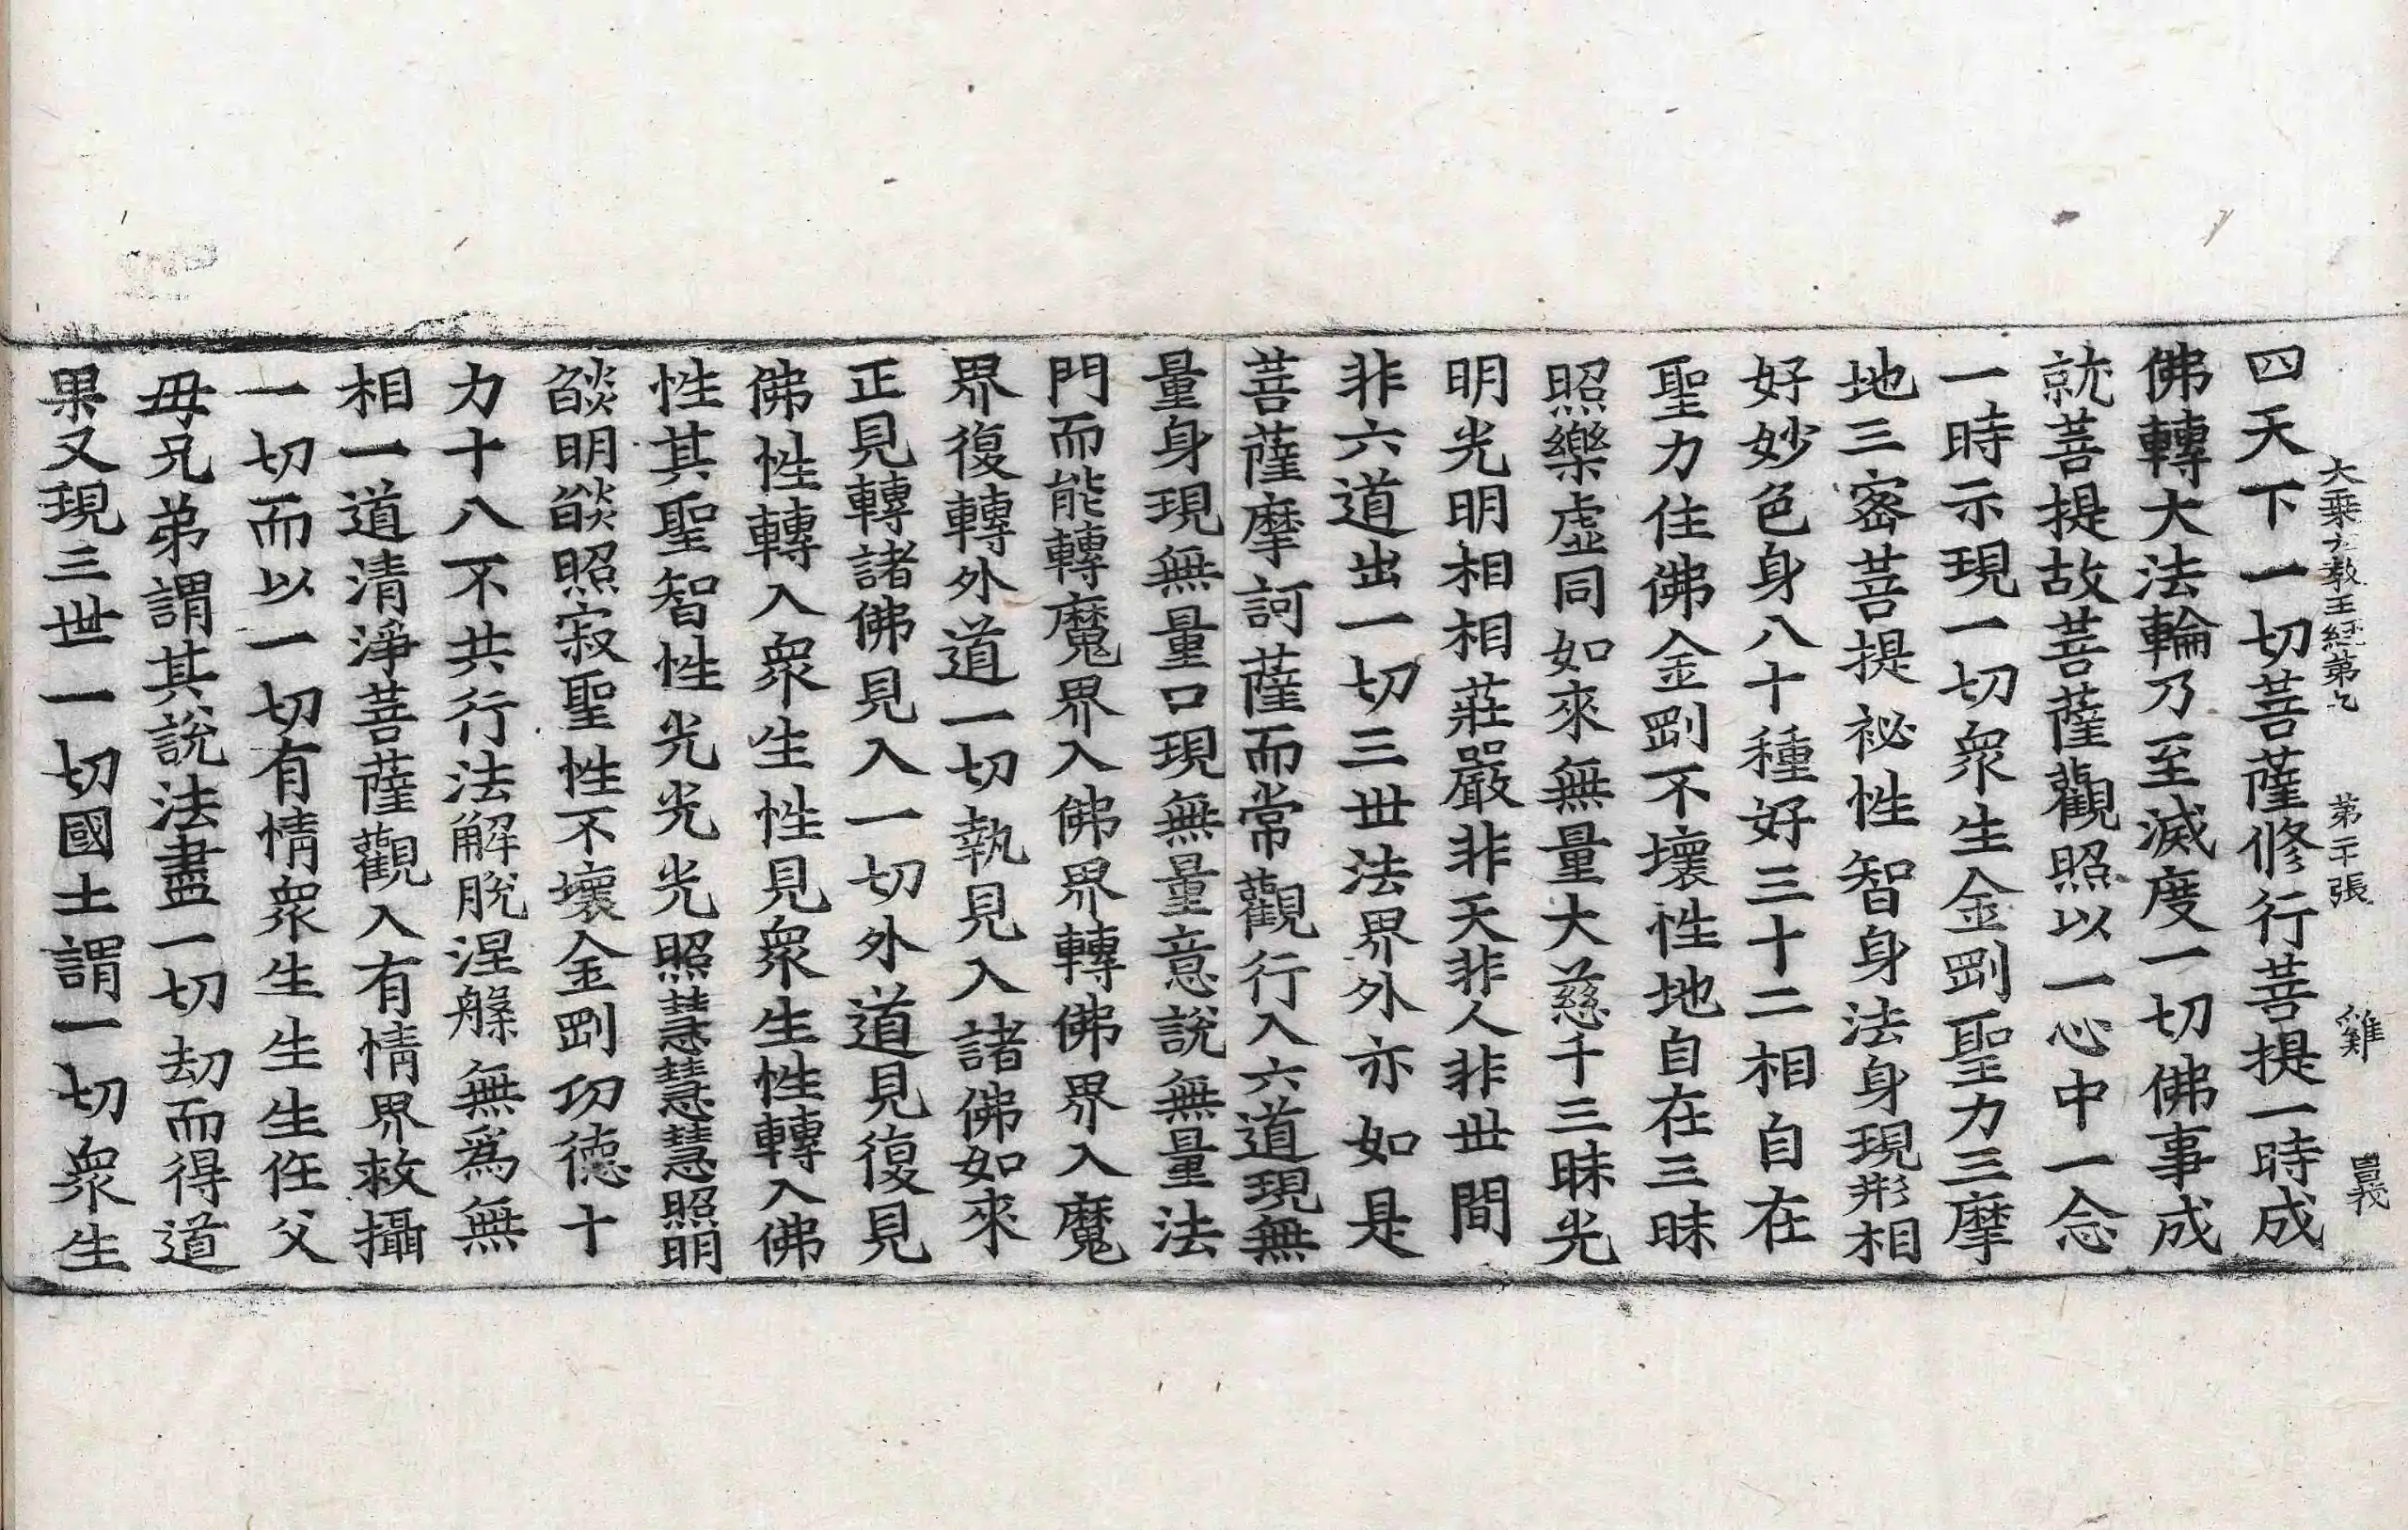 大乘大教王經第七 第十張 雞 㬢
四天下一切菩薩修行菩提一時成
佛轉大法輪乃至滅度一切佛事成
就菩提故菩薩觀照以一心中一念
一時示現一切衆生金剛聖力三摩
地三密菩提祕性智身法身現形相
好妙色身八十種好三十二相自在
聖力住佛金剛不壞性地自在三昧
照樂虛同如來無量大慈千三昧光
明光明相相莊嚴非天非人非世間
非六道出一切三世法界外亦如是
菩薩摩訶薩而常觀行入六道現無
量身現無量口現無量意說無量法
門而能轉魔界入佛界轉佛界入魔
界復轉外道一切執見入諸佛如來
正見轉諸佛見入一切外道見復見
佛性轉入衆生性見衆生性轉入佛
性其聖智性光光光照慧慧慧照明
燄明燄照寂聖性不壞金剛功德十
力十八不共行法解脫涅槃無爲無
相一道清淨菩薩觀入有情界救攝
一切而以一切有情衆生生生任父
母兄弟謂其說法盡一切劫而得道
果又現三世一切國土謂一切衆生